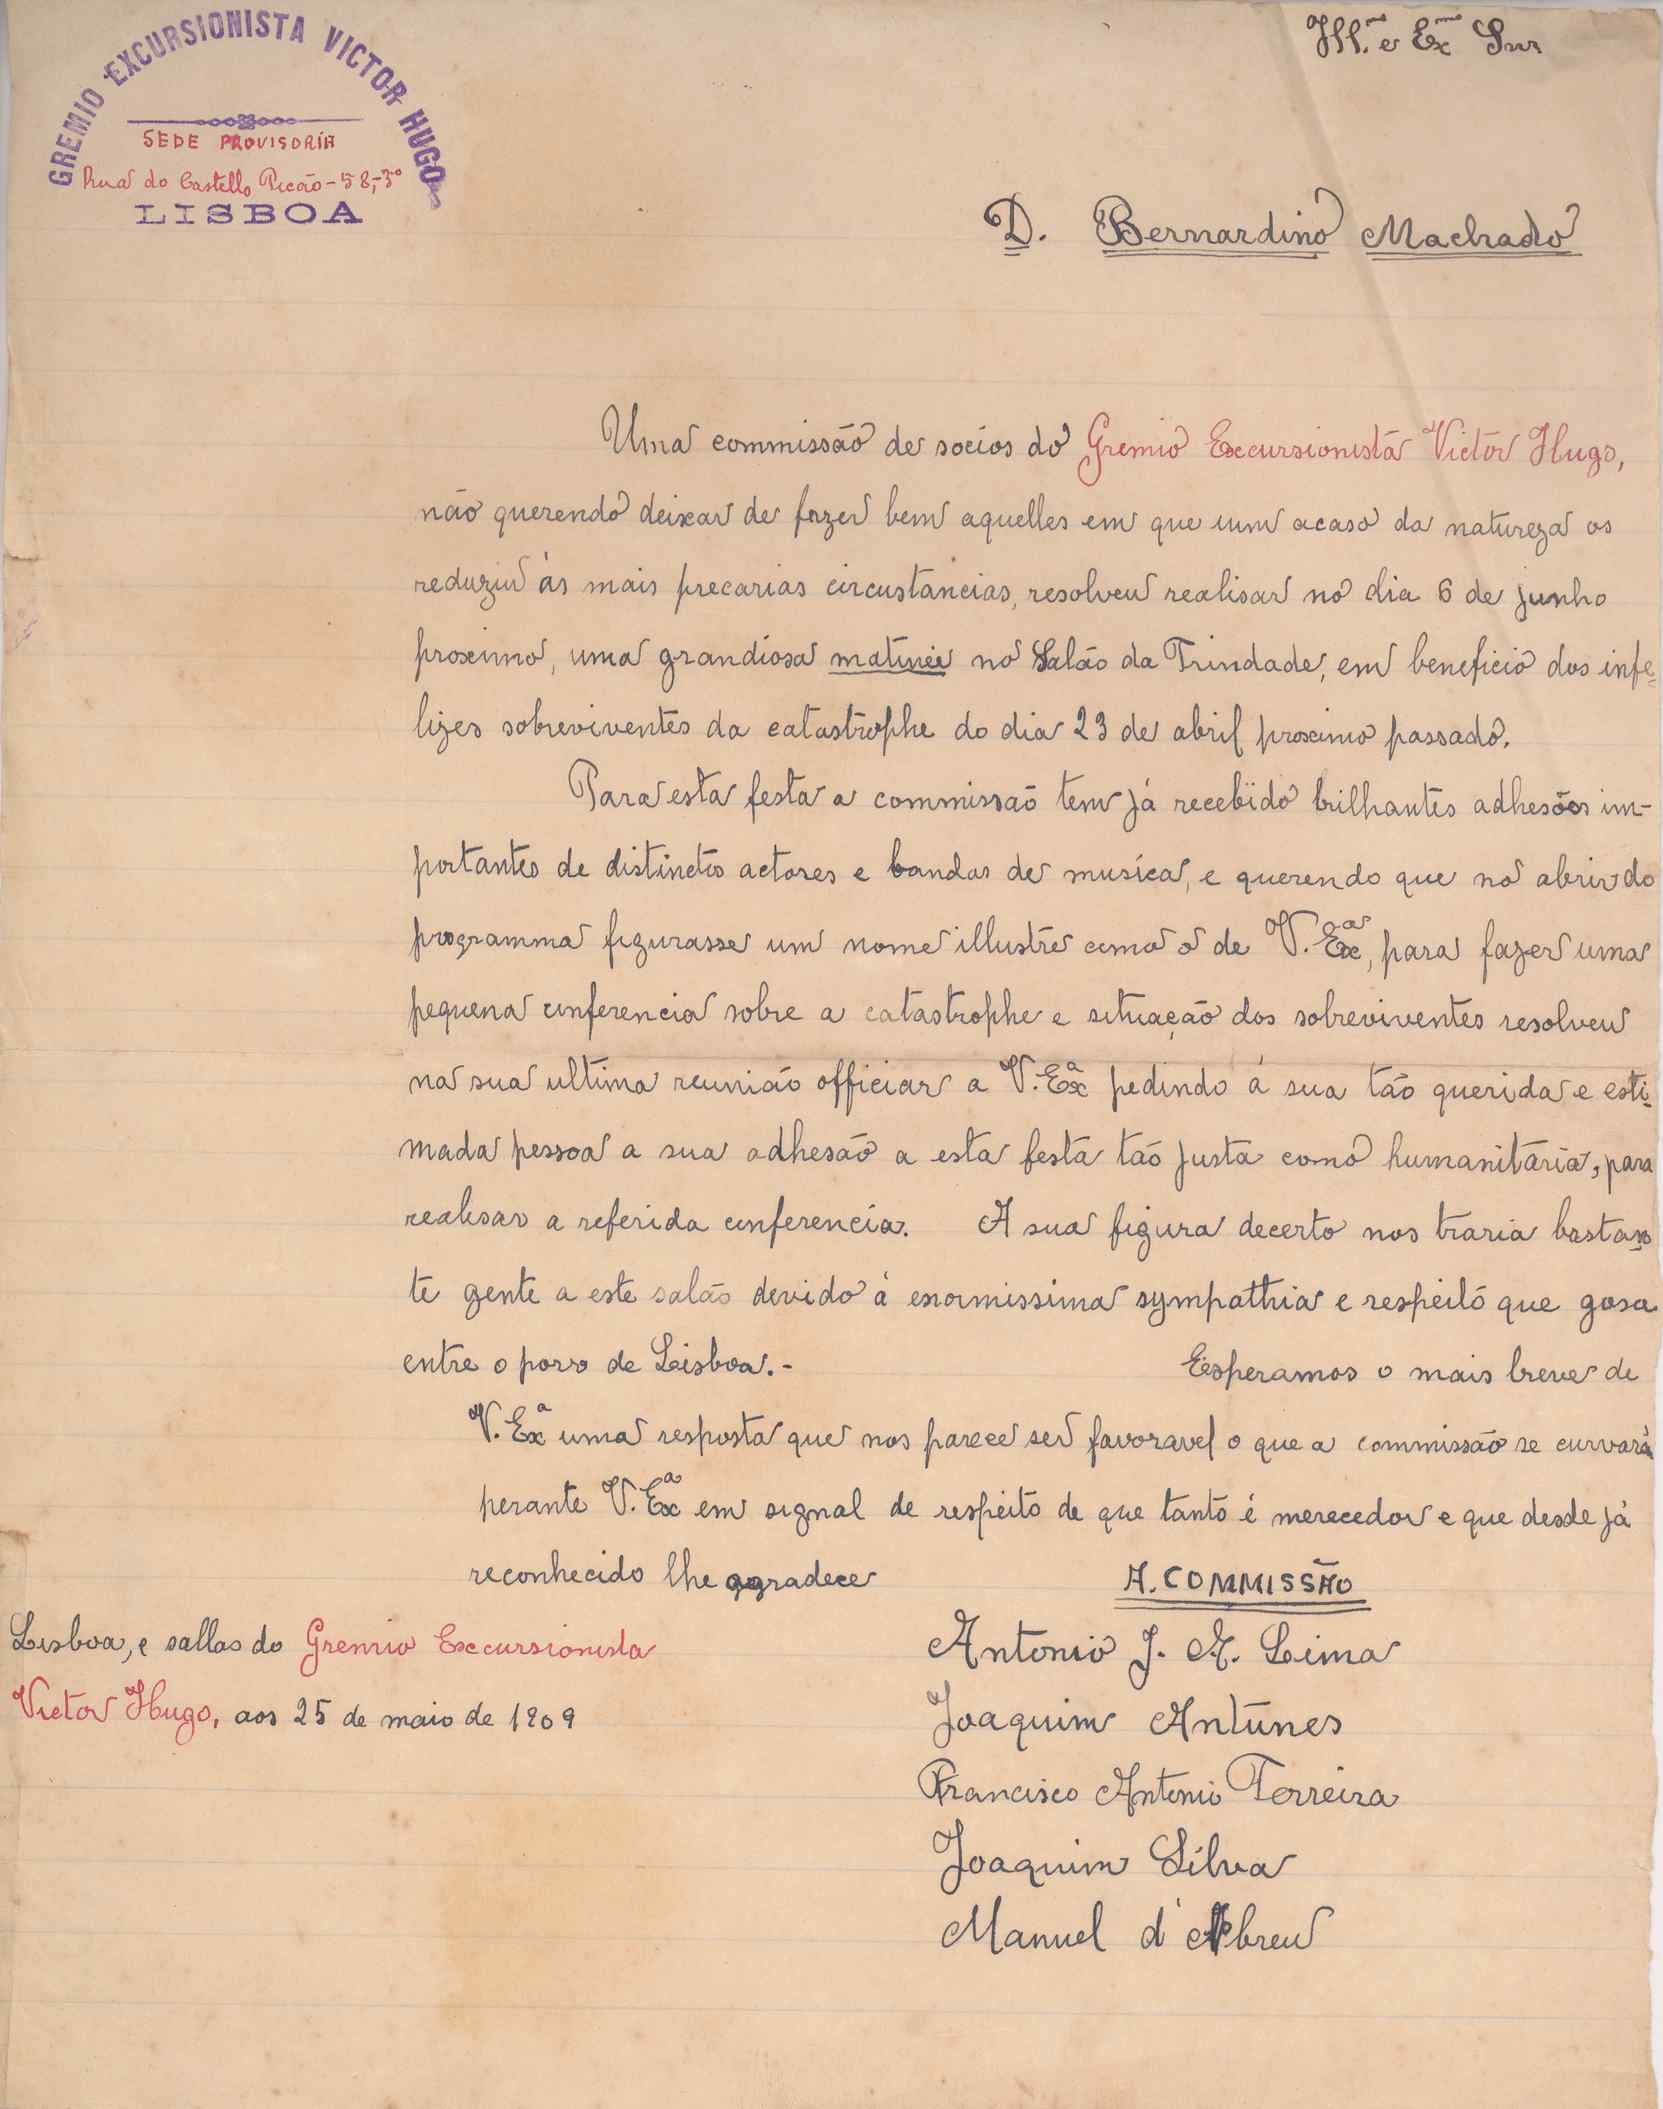 GREMIO EXCURSIONISTA VICTOR HUGO
SEDE PROVISORIA
Rua do Castello Picão-58,-3º
LISBOA
Ill.mo e Exmo Snr
D. Bernardino Machado
Uma commissão de socios do Gremio Excursionista Victor Hugo,
não querendo deixar de fazer bem aquelles em que um acaso da natureza os
reduziu ás mais precarias circustancias, resolveu realisar no dia 6 de junho
proximo, uma grandiosa matinée no Salão da Trindade, em beneficio dos infe-
lizes sobreviventes da catastrophe do dia 23 de abril proximo passado.
Para esta festa a commissão tem já recebido brilhantes adhesões im-
portantes de distinctos actores e bandas de musica, e querendo que no abrir do
programma figurasse um nome illustre como o de V. Exª, para fazer uma
pequena conferencia sobre a catastrophe e situação dos sobreviventes resolveu
na sua ultima reunião officiar a V. Exª pedindo á sua tão querida e esti-
mada pessoa a sua adhesão a esta festa tão justa como humanitaria, para
realisar a referida conferencia. A sua figura decerto nos traria bastan-
te gente a este salão devido á enormissima sympathia e respeito que gosa
entre o povo de Lisboa.-
Esperamos o mais breve de
V. Exª uma resposta que nos parece ser favoravel o que a commissão se curvará
perante V. Exª em signal de respeito de que tanto é merecedor e que desde já
reconhecido lhe agradece
A. COMMISSÃO
Lisboa, e sallas do Gremio Excursionista
Victor Hugo, aos 25 de maio de 1909
Antonio J. A. Lima
Joaquim Antunes
Francisco Antonio Ferreira
Joaquim Silva
Manuel d'Abreu